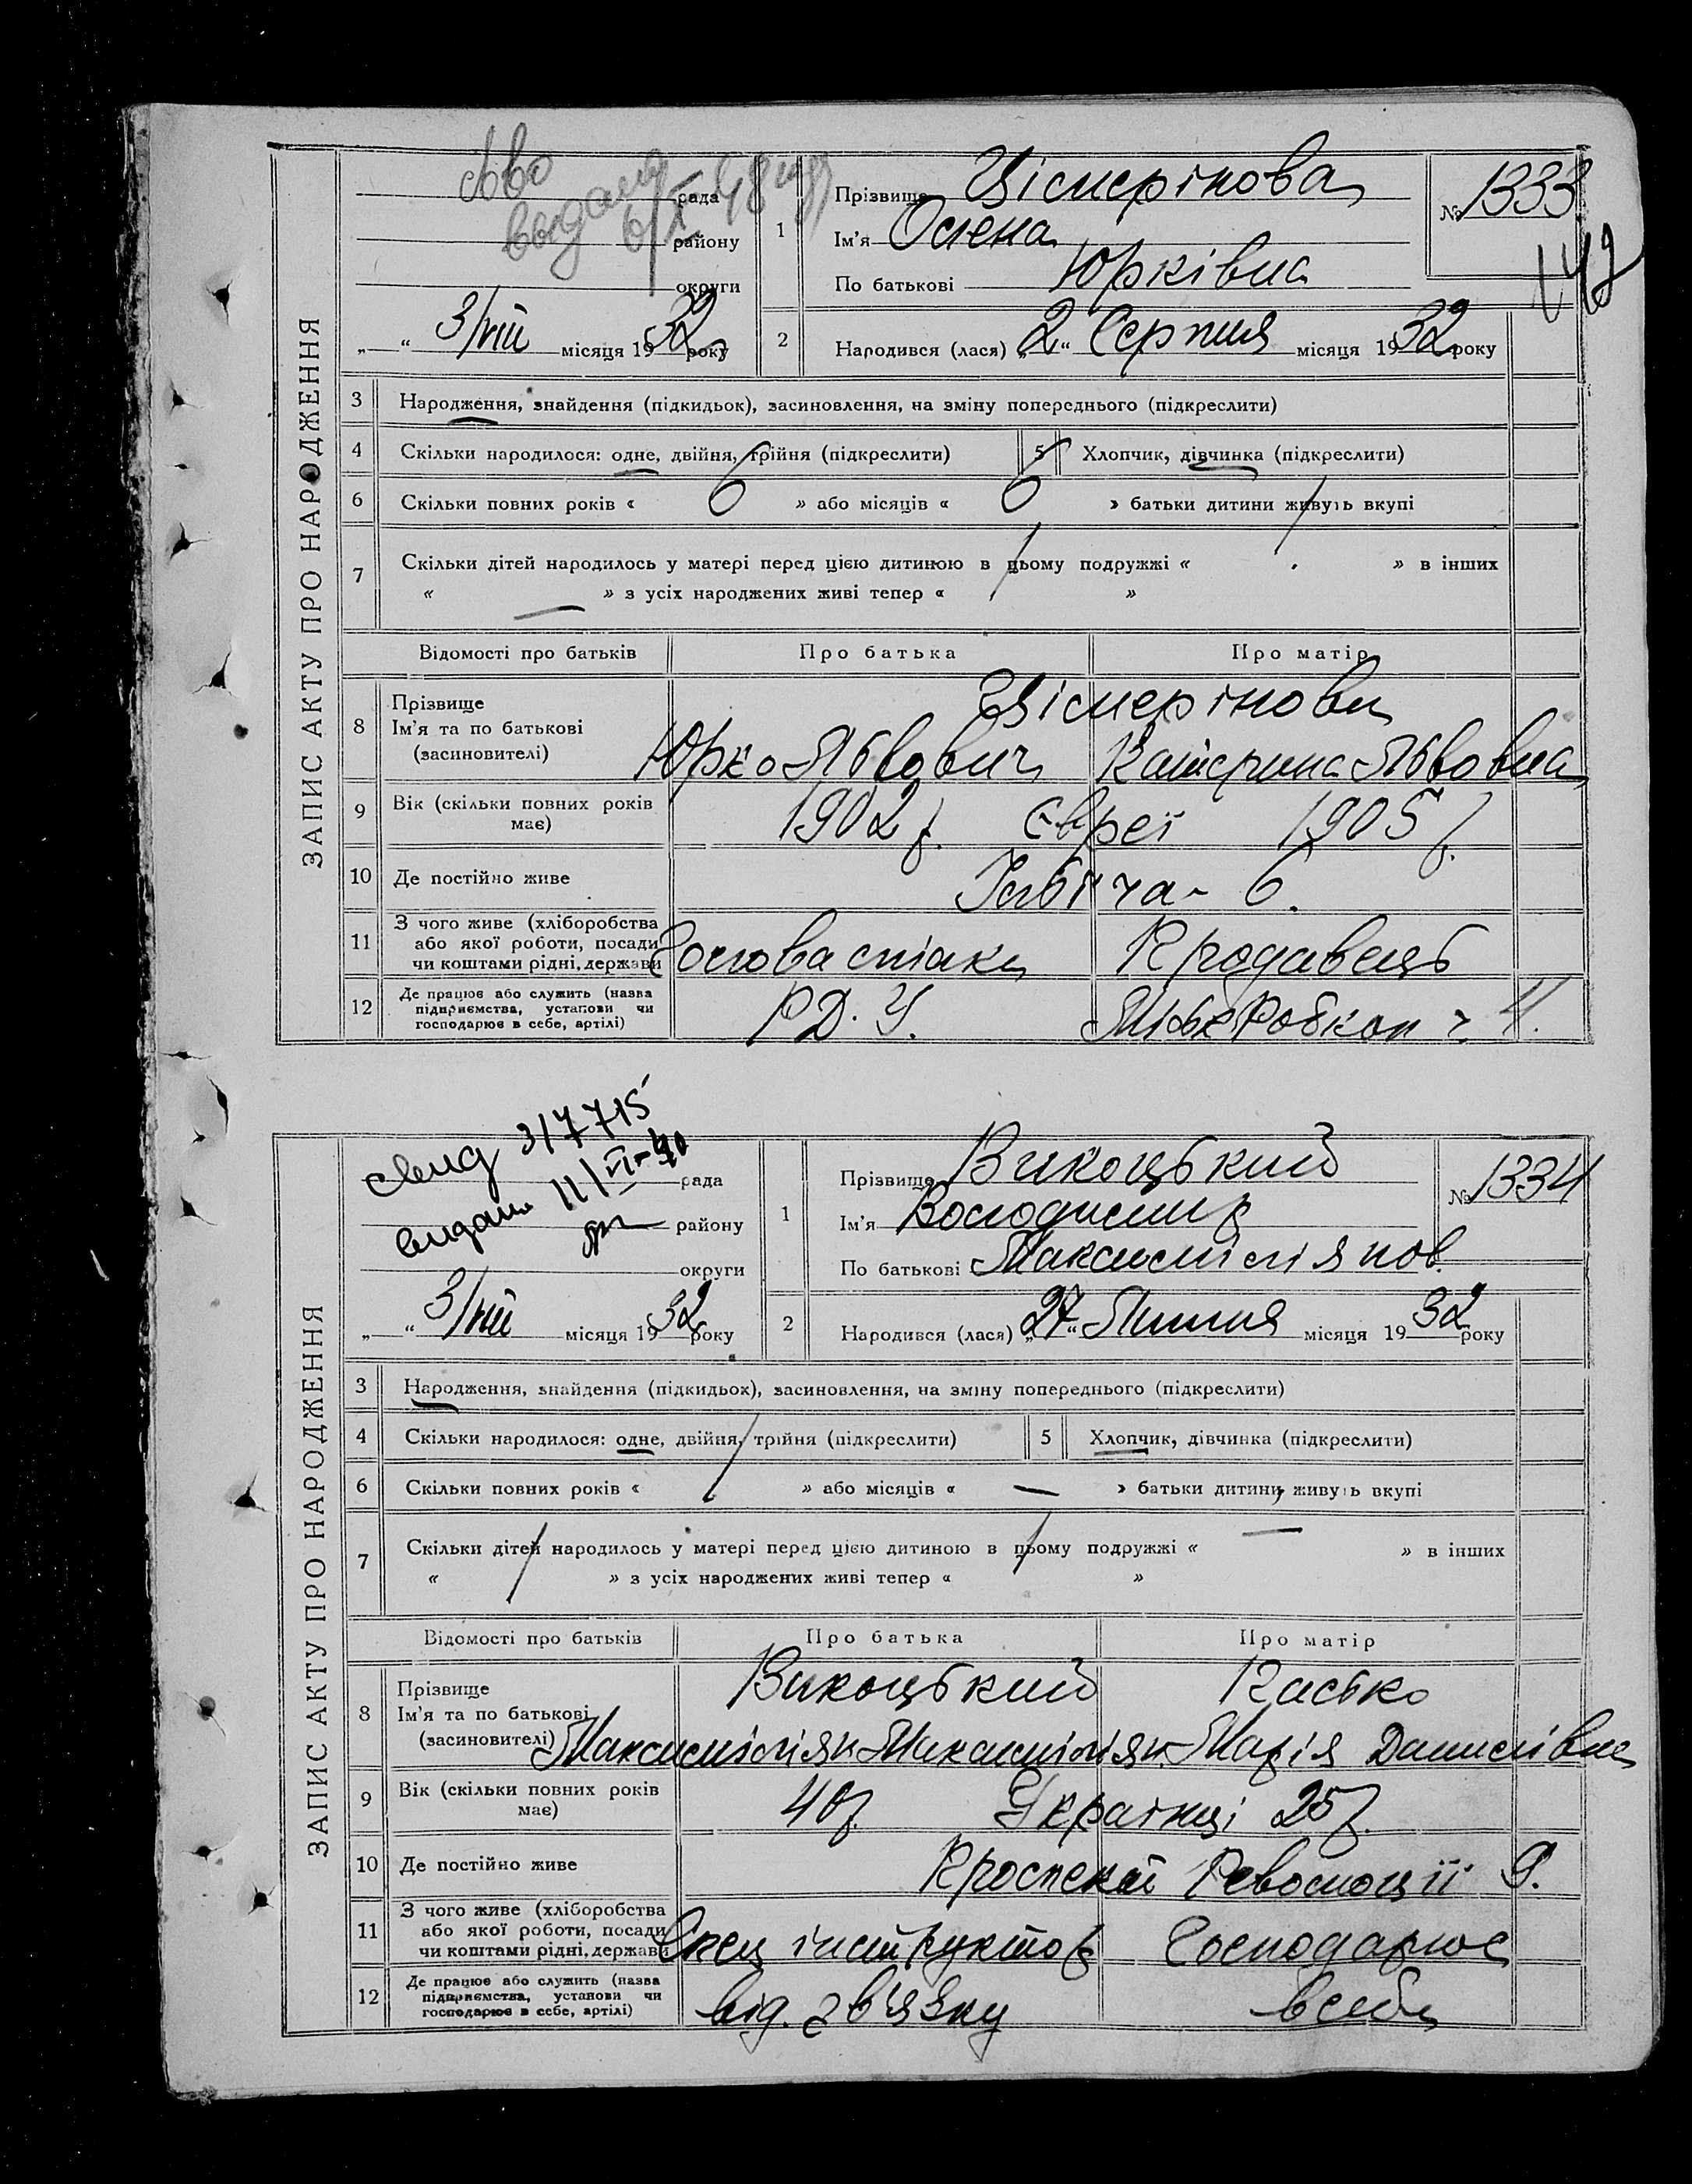 ЗАПИС АКТУ ПРО НАРОДЖЕННЯ
с-во
выдано
6/X 48 году
рада
району
округи
„ “ 3/VIII місяця 1932 року
1
Прізвище Цісмерінова
Ім'я Олена
По батькові Юрківна
№ 1333
2
Народився (лася) „2“ Серпня місяця 1932 року
3 Народження, знайдення (підкидьок), засиновлення, на зміну попереднього (підкреслити)
4 Скільки народилося: одне, двійня, трійня (підкреслити) 5 Хлопчик, дівчинка (підкреслити)
6 Скільки повних років « 6 » або місяців « 6 » батьки дитини живуть вкупі
7 Скільки дітей народилось у матері перед цією дитиною в цьому подружжі « » в інших
« — » з усіх народжених живі тепер « »
Відомості про батьків Про батька Про матір
8 Прізвище
Ім'я та по батькові
(засиновителі)
Цісмерінови
Юрко Львович Катерина Львовна
9 Вік (скільки повних років має) 1902 р. Євреї 1905 р.
10 Де постійно живе 6.
11 З чого живе (хліборобства або якої роботи, посади чи коштами рідні, держави Продавець
12 Де працює або служить (назва підприємства, установи чи господарює в себе, артілі) Р.Д.У. Робкоп ч. 4.
ЗАПИС АКТУ ПРО НАРОДЖЕННЯ
свид 317715
видано 11/VI-40
рада
району
округи
„ “ 3/VIII місяця 1932 року
1
Прізвище Викоцький
Ім'я Володимир
По батькові Максиміліянов.
№ 1334
2
Народився (лася) „27“ Липня місяця 1932 року
3 Народження, знайдення (підкидьох), засиновлення, на зміну попереднього (підкреслити)
4 Скільки народилося: одне, двійня, трійня (підкреслити) 5 Хлопчик, дівчинка (підкреслити)
6 Скільки повних років « 1 » або місяців « — » батьки дитини живуть вкупі
7 Скільки дітей народилось у матері перед цією дитиною в цьому подружжі « — » в інших
« » з усіх народжених живі тепер « »
Відомості про батьків Про батька Про матір
8 Прізвище
Ім'я та по батькові
(засиновителі)
Викоцький Касько
Максиміліян Максиміліян. Марія Данилівна
9 Вік (скільки повних років має) 40 р. Українці 25 р.
10 Де постійно живе Проспект Революції 9.
11 З чого живе (хліборобства або якої роботи, посади чи коштами рідні, держави Спец інструктор Господарює
12 Де працює або служить (назва підприємства, установи чи господарює в себе, артілі) від. зв'язку в себе